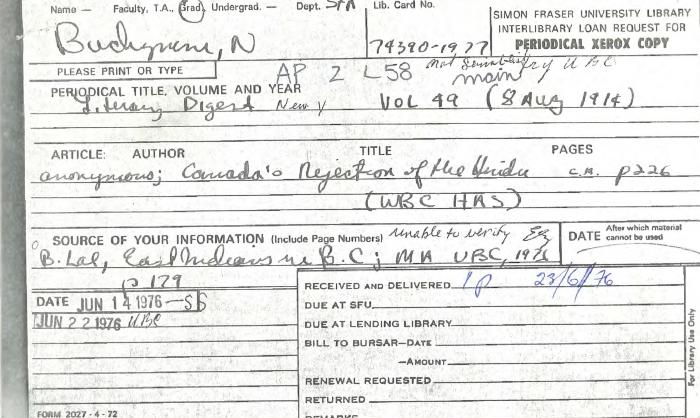 Name — Faculty, T.A., Grad. Undergrad. — Dept. Lib. Card No.
SIMON FRASER UNIVERSITY LIBRARY
INTERLIBRARY LOAN REQUEST FOR
PERIODICAL XEROX COPY
N 74390-1977
PLEASE PRINT OR TYPE AP 2 L58 main
PERIODICAL TITLE, VOLUME AND YEAR
Literary Digest New Y VOL 49 (8 Aug 1914)
ARTICLE: AUTHOR TITLE PAGES
anonymous; Canada's Rejection of the Hindu c.a. p226
(UBC HAS)
SOURCE OF YOUR INFORMATION (Include Page Numbers) unable to verify
DATE After which material cannot be used
B. Lal, East Indians in B.C; MA UBC, 1976
p 179
DATE JUN 14 1976 —SS
JUN 22 1976 UBC
RECEIVED AND DELIVERED 1p 23/6/76
DUE AT SFU
DUE AT LENDING LIBRARY
BILL TO BURSAR—DATE
—AMOUNT
RENEWAL REQUESTED
RETURNED
REMARKS
For Library Use Only
FORM 2027 - 4 - 72